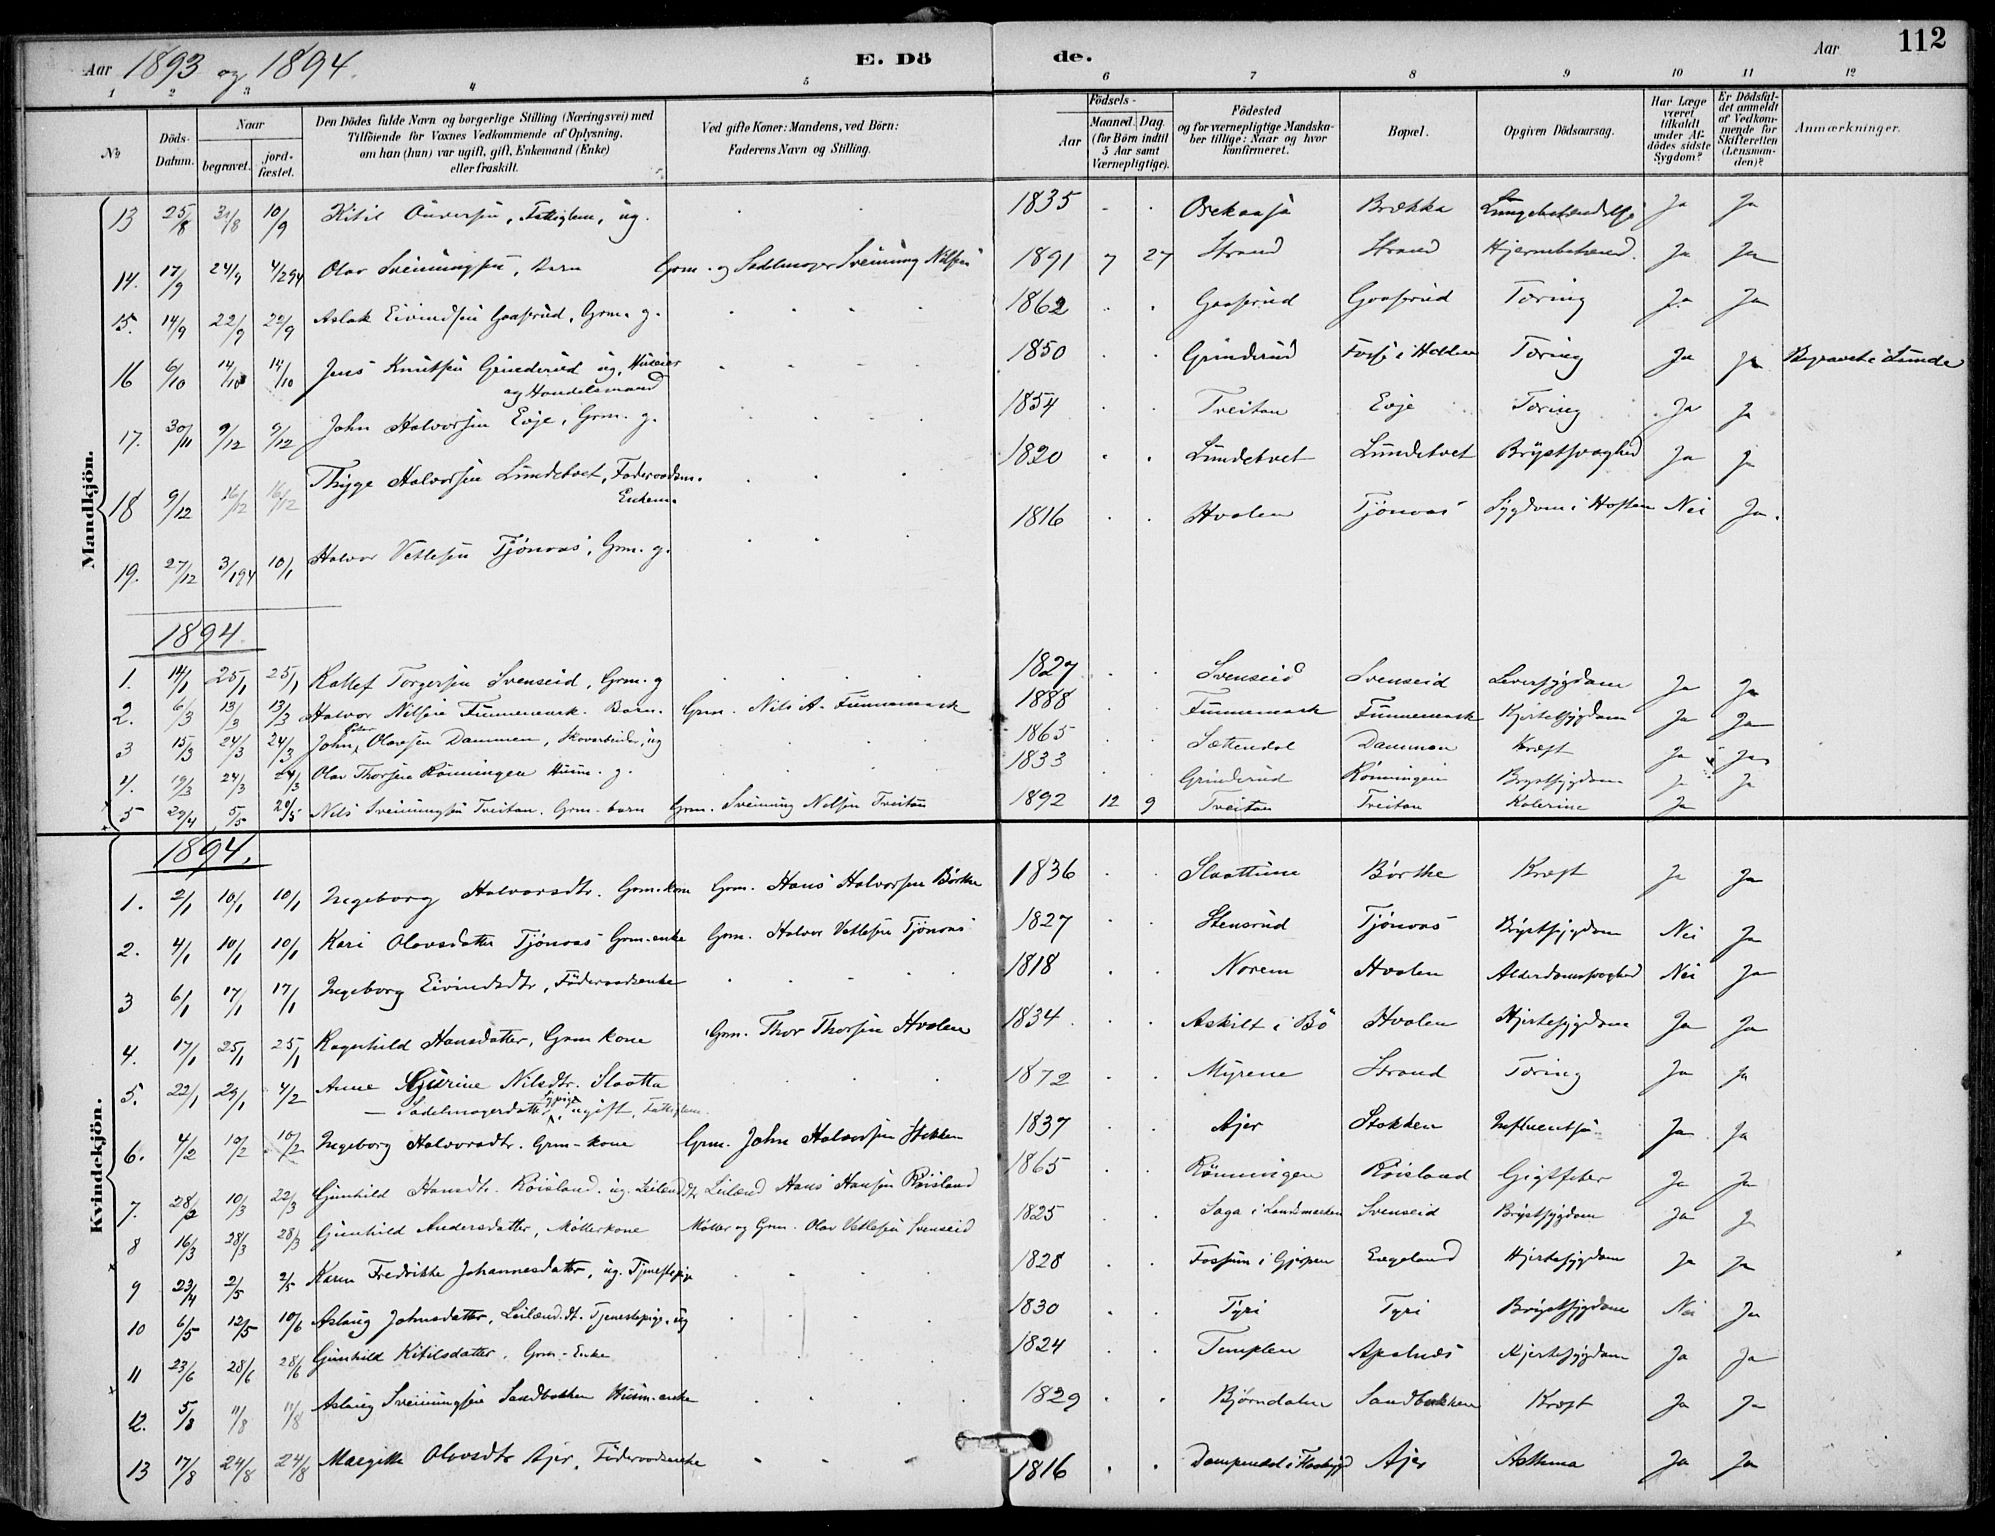 Aar 1893 og 1894. E. Döde. Aar 112
1 2 3 4 5 6 7 8 9 10 11 12
№ Döds-Datum. Naar begravet. jordfæstet. Den Dödes fulde Navn og borgerlige Stilling (Næringsvei) med Tilföiende for Voxnes Vedkommende af Oplysning, om han (hun) var ugift, gift, Enkemand (Enke) eller fraskilt. Ved gifte Koner: Mandens, ved Börn: Faderens Navn og Stilling. Födsels- Aar Maaned Dag (for Börn indtil 5 Aar samt Værnepligtige). Födested og for værnepligtige Mandskaber tillige: Naar og hvor konfirmeret. Bopæl. Opgiven Dödsaarsag. Har Læge været tilkaldt under Afdödes sidste Sygdom? Er Dödsfaldet anmeldt af Vedkommende for Skifteretten (Lensmanden)? Anmærkninger.
Mandkjön.
13 25/8 31/8 10/9 Kitil Fattiglem, ug. 1835 Brække Ja Ja
14. 17/9 24/9 4/2 94 Olav Sveinungsen, Barn Grm. og Sadelmager Sveinung Nilsen 1891 7 27 Strand Strand Hjernebetænd. Ja Ja
15. 14/9 22/9 22/9 Aslak Eivindsen Gaasrud, Grm. g. 1862 Gaasrud Gaasrud Tæring Ja Ja
16 6/10 14/10 14/10 Jens Knutsen Grinderud ug. Huseier og Handelsmand 1850 Grinderud i Holden Tæring Ja Ja Begravet i Lunde
17. 30/11 9/12 9/12 John Halvorsen Evje, Grm. g. 1854 Treitan Evje Tæring Ja Ja
18 9/12 16/12 16/12 Thyge Halvorsen Lundetvet, Föderaadsm. Enkem. 1820 Lundetvet Lundetvet Brystsvaghed Ja Ja
19. 27/12 3/1 94 10/1 Halvor Vetlesen Tjönaas, Grm. g. 1816 Hvalen Tjönaas Sygdom i Hoften Nei Ja.
1894.
1. 14/1 25/1 25/1 Rollef Torgersen Svenseid, Grm. g 1827 Svenseid Svenseid Leversygdom Ja Ja
2. 6/3 13/3 13/3 Halvor Nilsen Funnemark. Barn. Grm. Nils A. Funnemark 1888 Funnemark Funnemark Kjertelsygdom Ja Ja
3 15/3 24/3 24/3 John Peter Olavsen Dammen, Skovarbeider, ug 1865 Sættendal Dammen Kræft Ja Ja
4. 19/3 24/3 24/3 Olav Thorsen Rönningen Husm. g. 1833 Grinderud Rönningen Brystsygdom Ja Ja
5 29/4 5/5 20/5 Nils Sveinungsen Treitan. Grm-barn Grm. Sveinung Nilsen Treitan 1892 12 9 Treitan Treitan Kolerine Ja
Kvindekjön.
1894.
1. 2/1 10/1 10/1 Ingeborg Halvorsdtr. Grm-kone Grm. Hans Halvorsen Börthe 1836 Slaattune Börthe Kræft Ja Ja
2. 4/1 10/1 10/1 Kari Olavsdatter Tjönaas Grm-enke Grm. Halvor Vetlesen Tjönaas 1827 Stensrud Tjönaas Brystsygdom Nei Ja
3 6/1 17/1 17/1 Ingeborg Eivindsdtr, Föderaadsenke 1818 Norem Hvalen Alderdomssvaghed Nei Ja
4. 17/1 25/1 25/1 Ragnhild Hansdatter, Grm kone Grm. Thor Thorsen Hvalen 1834 Askilt i Bö Hvalen Hjertesygdom Ja Ja
5. 22/1 29/1 4/2 Anne Gurine Nilsdtr. Slaatta 1872 Myrene Strand Tæring Ja Ja
— Sadelmagerdatter, Sypige, ugift, Fattiglem.
6. 4/2 10/2 10/2 Ingeborg Halvorsdtr. Grm-kone Grm. John Halvorsen Stokken 1837 Ajer Stokken Influentsa Ja Ja
7. 28/2 10/3 22/3 Gunhild Hansdtr. Röisland. ug. Leilænd.dtr. Leilænd Hans Hansen Röisland 1865 Rönningen Röisland Gigtfeber Ja Ja
8 16/3 28/3 28/3 Gunhild Andersdatter, Möllerkone Möller og Grm. Olav Vetlesen Svenseid 1825 Saga i Landsmarken Svenseid Brystsygdom Ja Ja
9 23/4 2/5 2/5 Karen Fredrikke Johannesdatter, ug. Tjenestepige 1828 Fossum i Gjerpen Engeland Hjertesygdom Ja Ja
10 6/5 12/5 10/6 Aslaug Johnsdatter, Leilænd.dt. Tjenestepige, ug 1830 Tyri Tyri Brystsygdom Nei Ja
11 23/6 28/6 28/6 Gunhild Kitilsdatter. Grm-Enke 1824 Templen Apalnæs Hjertesygdom Ja Ja
12. 5/8 11/8 11/8 Aslaug Sveinungsen Sandbakken Husm-enke 1829 Björndalen Sandbakken Kræft Ja Ja
13 17/8 24/8 24/8 Margitte Olavsdtr Ajer, Föderaadsenke 1816 Ajer Asthma Ja Ja